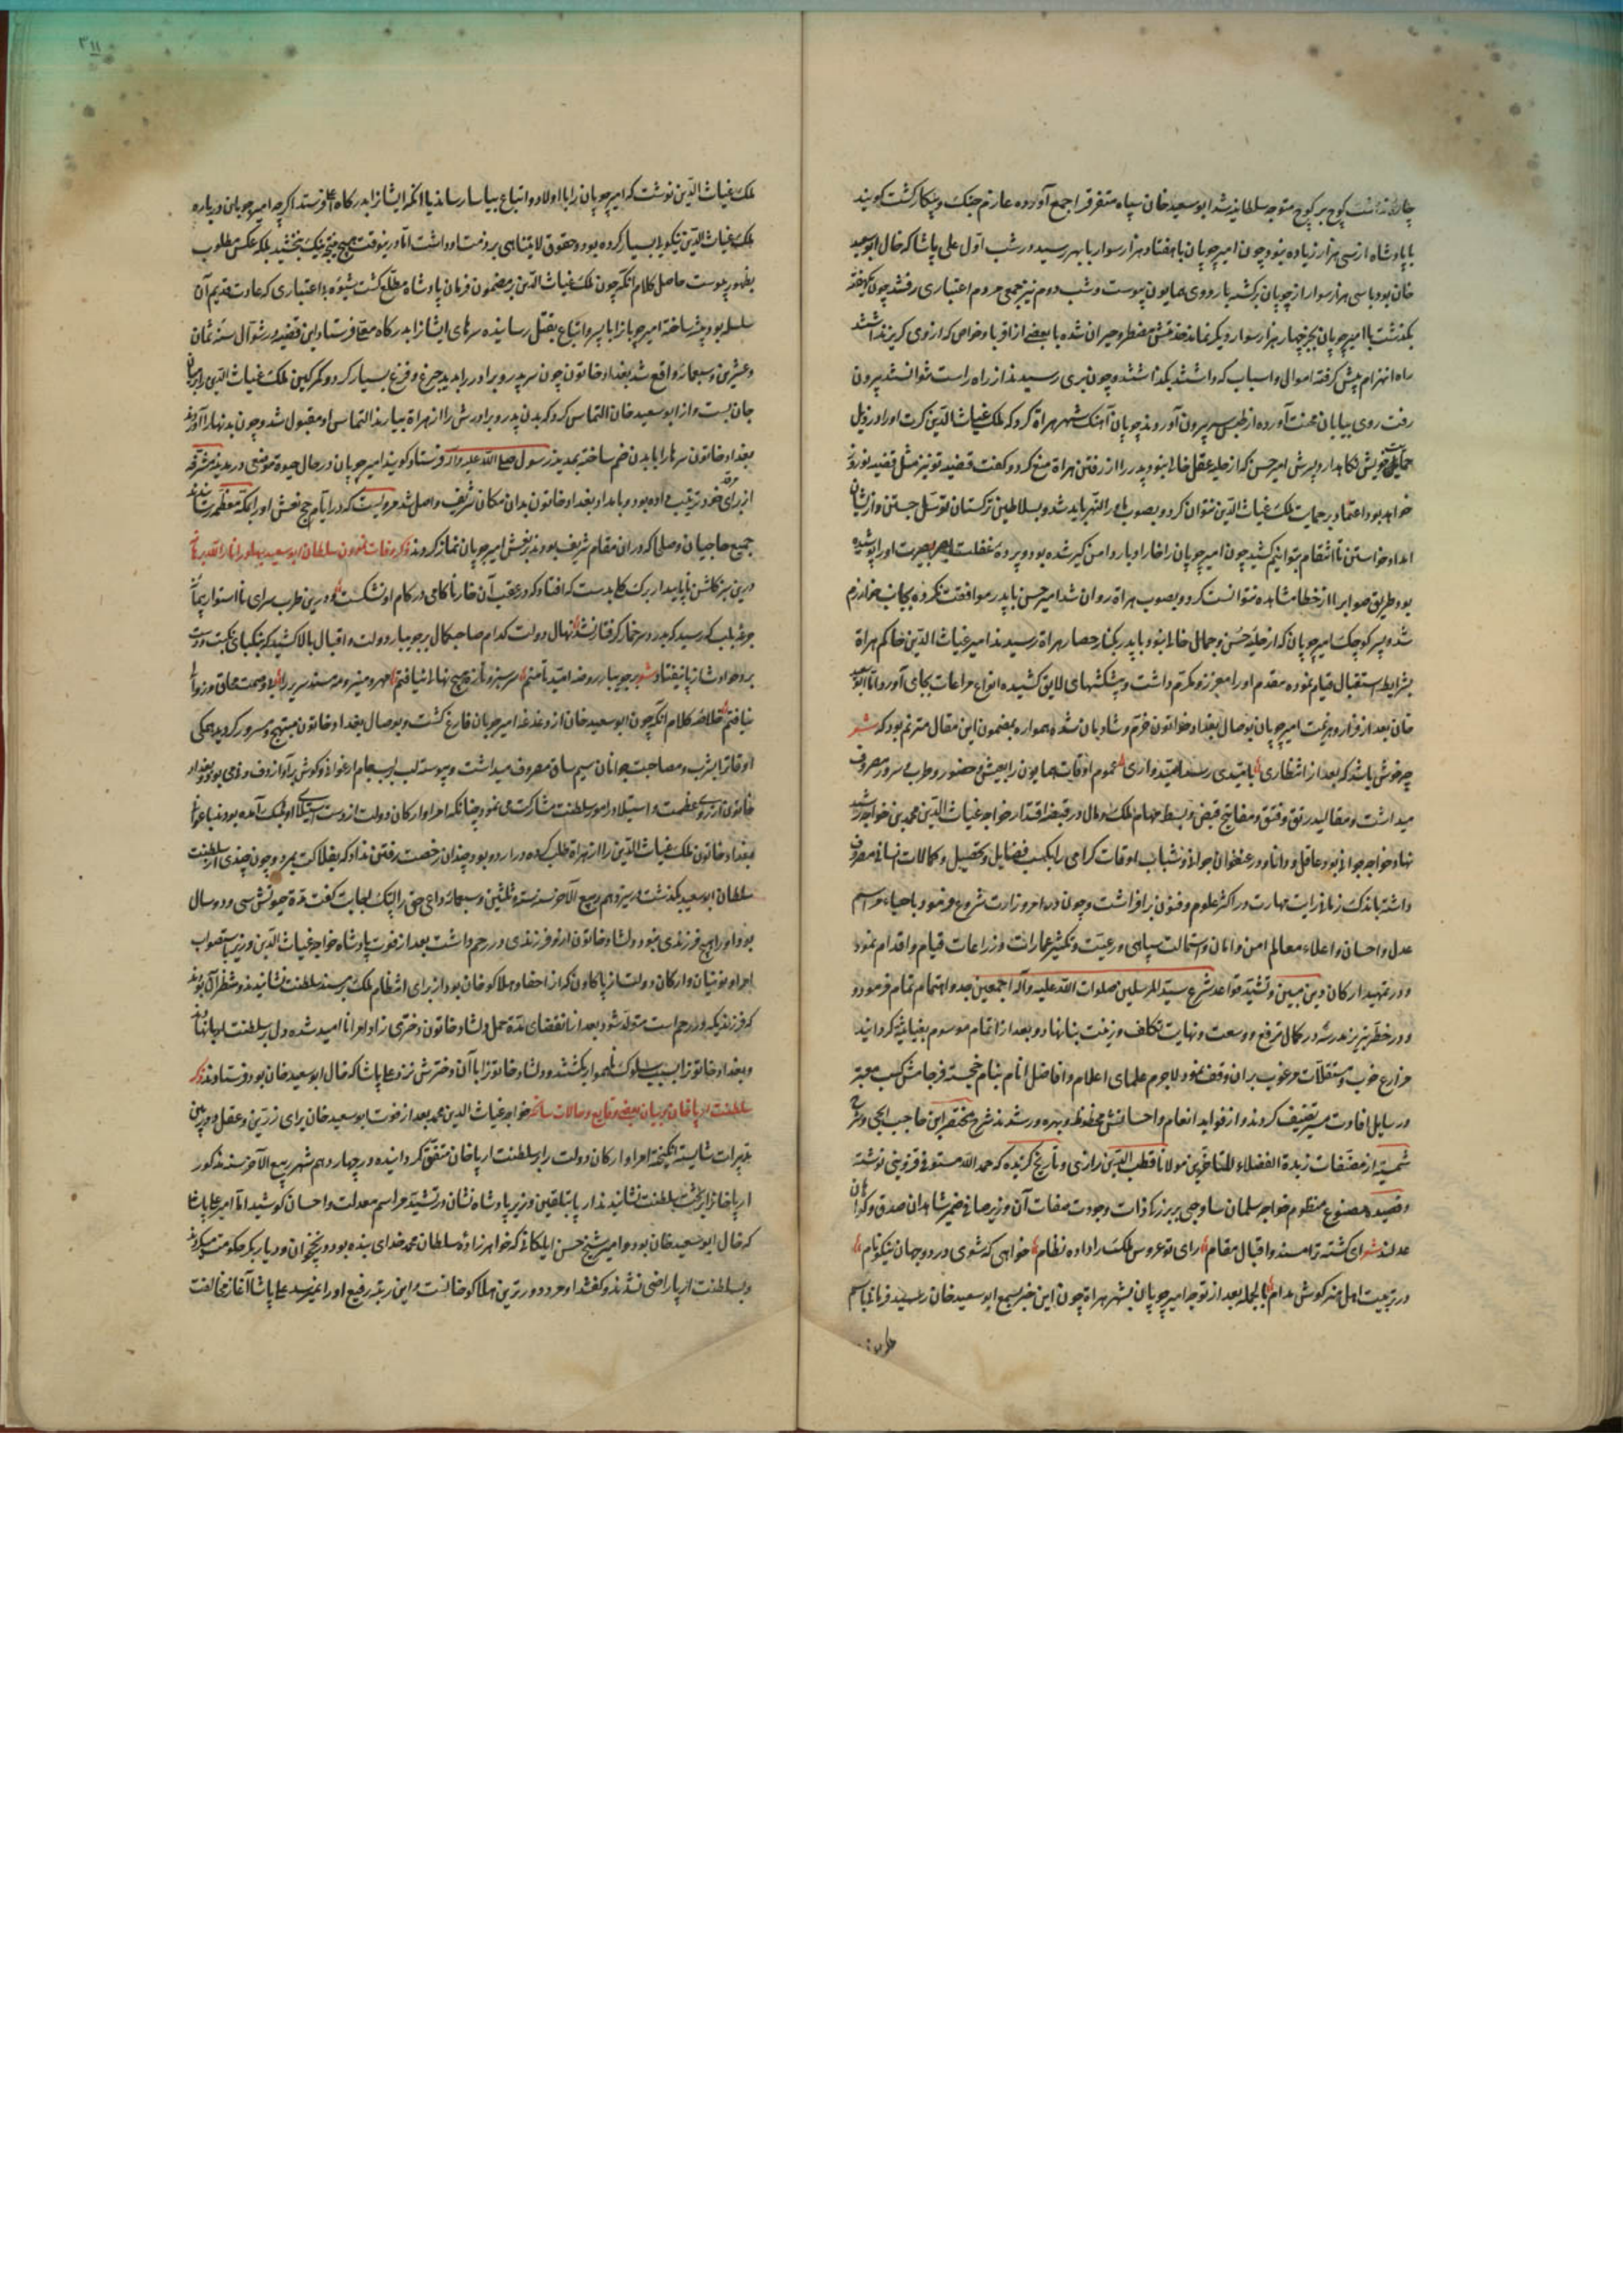 کوچ بر کوچ متوجه سلطانیه شد ابوسعید خان سپاه متفرقرا جمع آورده عازم جنک و پیکار کشت کویند
با پادشاه از سی هزار زیاده نبود و چون امیر چوپان با هفتاد هزار سوار بابهر رسید در شب اول علی پاشا که خال ابوسعید
خان بود با سی هزار سوار از چوپان برکشته باردوی همایون پیوست و شب دوم نیز جمعی مردم اعتباری رفتند چون
بکذشت با امیر چوپان بجز چهار هزار سوار دیکر نماند مضطر و حیران شده با بعضی از اقربا و خواص که از وی کریز نداشتند
راه انهزام پیش کرفته اموال و اسباب که داشتند بکذاشتند و چون بری رسیدند از راه راست نتوانستند بیرون
رفت روی ببیابان محنت آورده از طبس بیرون آوردند چوپان آهنک شهر هراة کرد که ملک غیاث الدین کرت او را در ذیل
حمایت خویش نکاهدارد پسرش امیر حسن که از حلیه عقل خالی نبود پدر را از رفتن هراة منع کرد و کفت قضیه تو نیز مثل قضیه نوروز
خواهد بود اعتماد بر حمایت ملک غیاث الدین نتوان کرد و بصوب ماوراء النهر باید شد و بسلاطین ترکستان توسل جستن و از ایشان
امداد خواستن تا انتقام توانیم کشید چون امیر چوپان را خار ادبار دامن کیر شده بود و پرده غفلت بصر بصیرت او را پوشیده
بود طریق صوابرا از خطا مشاهده نتوانست کرد و بصوب هراة روان شد امیر حسن با پدر موافقت نکرده بجانب خوارزم
شد پسر کوچک امیر چوپان که از حلیه حسن و جمال خالی نبود با پدر بکنار حصار هراة رسیدند امیر غیاث الدین حاکم هراة
بشرایط استقبال قیام نموده مقدم او را معزز و مکرم داشت و پیشکشهای لایق کشیده انواع مراعات بجای آورد و اما ابوسعید
خان بعد از فرار و هزیمت امیر چوپان بوصال بغداد خواتون خرم و شادمان شده همواره بمضمون این مقال مترنم بود که شعر
چه خوش باشد که بعد از انتظاری بامیدی رسد امیدواری عموم اوقات همایون را بعیش و حضور و طرب و سرور مصروف
میداشت و مقالید رتق و فتق و مفاتیح قبض و بسط مهام ملک و مال در قبضه اقتدار خواجه غیاث الدین محمد بن خواجه رشید
نهاد خواجه جوانی بود عاقل و دانا و در عنفوان جوانی و شباب اوقات کرامی را بکسب فضایل و تحصیل و کمالات نهانی مصروف
داشته باندک زمانی رایت مهارت در اکثر علوم و فنون برافراشت و چون در امر وزارت شروع فرمود باحیاء مراسم
عدل و احسان و اعلاء معالم امن و امان و استمالت سپاهی و رعیت و تکثیر عمارات و زراعات قیام و اقدام نمود
و در تمهید ارکان دین مبین و تشیید قواعد شرع سید المرسلین صلوات الله علیه و آله اجمعین جد و اهتمام تمام فرمود و
و در خطه تبریز مدرسه در کمال ترفیع و وسعت و نهایت تکلف و زینت بنا نهاد و بعد از اتمام موسوم بغیاثیه کردانید
مزارع خوب و مستقلات مرغوب بران وقف نمود لاجرم علمای اعلام و افاضل انام بنام خجسته فرجامش کتب معتبر
و رسایل افادت میسر تصنیف کردند و از فواید انعام و احسانش محظوظ و بهره ور شدند شرح مختصر ابن حاجب ایجی و شرح
شمسیه از مصنفات زبدة الفضلاء المتاخرین مولانا قطب الدین رازی و تاریخ کزیده که حمد الله مستوفی قزوینی نوشته
و قصیده مصنوع منظوم خواجه سلمان ساوجی بر بزرکی ذات وجودت صفات آن وزیر صافی ضمیر شاهدان صدق و کواهان
عدلند شعر ای کشته ترا مسند و اقبال مقام رای تو عروس ملکت را داده نظام خواهی که شوی در دو جهان نیکونام
در تربیت اهل هنر کوش مدام بالجمله بعد از توجه امیر چوپان بشهر هراة چون این خبر بسمع ابوسعید خان رسید فرمانی باسم
ملک غیاث الدین نوشت که امیر چوپان را با اولاد و اتباع بیاسا رساند یا آنکه ایشانرا بدرکاه اعلی فرستد اکرچه امیر چوپان درباره
ملک غیاث الدین نیکویی بسیار کرده بود و حقوق لایتناهی بر ذمت او داشت اما درینوقت هیچ نتیجه نیک نبخشید بلکه عکس مطلوب
بظهور پیوست حاصل کلام آنکه چون ملک غیاث الدین بر مضمون فرمان پادشاه مطلع کشت شیوه بی اعتباری که عادت قدیم آن
سلسله بود پیشه ساخته امیر چوپانرا با پسر و اتباع بقتل رسانیده سرهای ایشانرا بدرکاه معلی فرستاد و این قضیه در شوال سنه ثمان
و عشرین و سبعمایه واقع شد بغداد خاتون چون سر پدر و برادر را بدید جزع و فزع بسیار کرد و کمر کین ملک غیاث الدین بر میان
جان بست و از ابوسعید خان التماس کرد که بدن پدر و برادرش را از هراة بیارند التماس او مقبول شد و چون بدنها را آوردند
بغداد خاتون سرها را با بدن ضم ساخته بمدینه رسول صلی الله علیه و آله فرستاد کویند امیر چوپان در حال حیوة موضعی در مدینه مشرفه
از برای مرقد خود ترتیب داده بود و بامداد بغداد خاتون بدان مکان شریف واصل شد مرویست که در ایام حج نعش او را بمکه معظمه رسانیدند
جمیع حاجیان و صلحا که در ان مقام شریف بودند بر نعش امیر چوپان نماز کردند ذکر وفات نمودن سلطان ابوسعید بهادر انار الله برهانه
درین سبز کلشن ناپایدار برک کلی بدست که افتاد که در عقب آن خار ناکامی در کام او نشکست و درین طرب سرای نااستوار پیمانه
جرعه بلب که رسید که بدرد سر خمار کرفتار نشد نهال دولت کدام صاحبکمال بر جویبار دولت و اقبال بالا کشید که بتکبای نکبت
بر و حوادث از پا نیفتاد شعر بر جویبار روضه امید تا منم سر سبز و تازه هیچ نهالی نیافتم مهر و منیر و مه مسند سریر را وصمت محاق و زوال
نیافتم خلاصه کلام آنکه چون ابوسعید خان از دغدغه امیر چوپان فارغ کشت و بوصال بغداد خاتون مبتهج و مسرور کردید همکی
اوقاترا بشرب و مصاحبت جوانان سیم ساق مصروف میداشت و پیوسته لب بر لب جام ارغوانی و کوش بر آواز دف و نی بود و بغداد
خاتون از روی عظمت و استیلا در امور سلطنت مشارکت می نمود چنانکه امرا و ارکان دولت از دست استیلای او بتنک آمده بودند
بغداد خاتون ملک غیاث الدین را از هراة طلب کرده در اردو بود چندان رخصت رفتن نداد که بفلاکت بمرد و چون چندی از سلطنت
سلطان ابوسعید بکذشت در سیزدهم ربیع الآخر سنه ستة و ثلثین و سبعمایه داعی حق را لبیک اجابت کفت مدة حیوتش سی و دو سال
بود او را هیچ فرزندی نبود و دلشاد خاتون ازو فرزندی در رحم داشت بعد از فوت پادشاه خواجه غیاث الدین وزیر بتصویب
امرا و نوئینان و ارکان دولت ارپا کاون که از احفاد هلاکو خان بود از برای انتظام ملک بر مسند سلطنت نشانیدند و منتظر آن بودند
که فرزندیکه در رحم است متولد شود بعد از انقضای مدة حمل دلشاد خاتون دختری زاد و امرا ناامید شده دل بر سلطنت ارپا نهادند
و بغداد خاتونرا بسبب سلوک ناهموار بکشتند و دلشاد خاتونرا با آن دخترش نزد علی پاشا که خال ابوسعید خان بود فرستادند ذکر
سلطنت ارپا خان و بیان بعضی وقایع و حالات سانحه خواجه غیاث الدین محمد بعد از فوت ابوسعید خان برای رزین و عقل دوربین
تدبیرات شایسته انکیخته امرا و ارکان دولت را بر سلطنت ارپا خان متفق کردانیده در چهاردهم شهر ربیع الآخر سنه مذکور
ارپا خانرا بر تخت سلطنت نشانیدند ارپا بتلقین وزیر پادشاه نشان در تشیید مراسم معدلت و احسان کوشید اما امیر علی پاشا
که خال ابوسعید خان بود و امیر شیخ حسن ایلکانی که خواهرزاده سلطان محمد خدای بنده بود و نخجوان و دیاربکر حکومت میکردند
بسلطنت ارپا راضی نشدند و کفتند او مردود ترین هلاکو خانست و این رتبه رفیع او را نمیرسد علی پاشا آغاز مخالفت